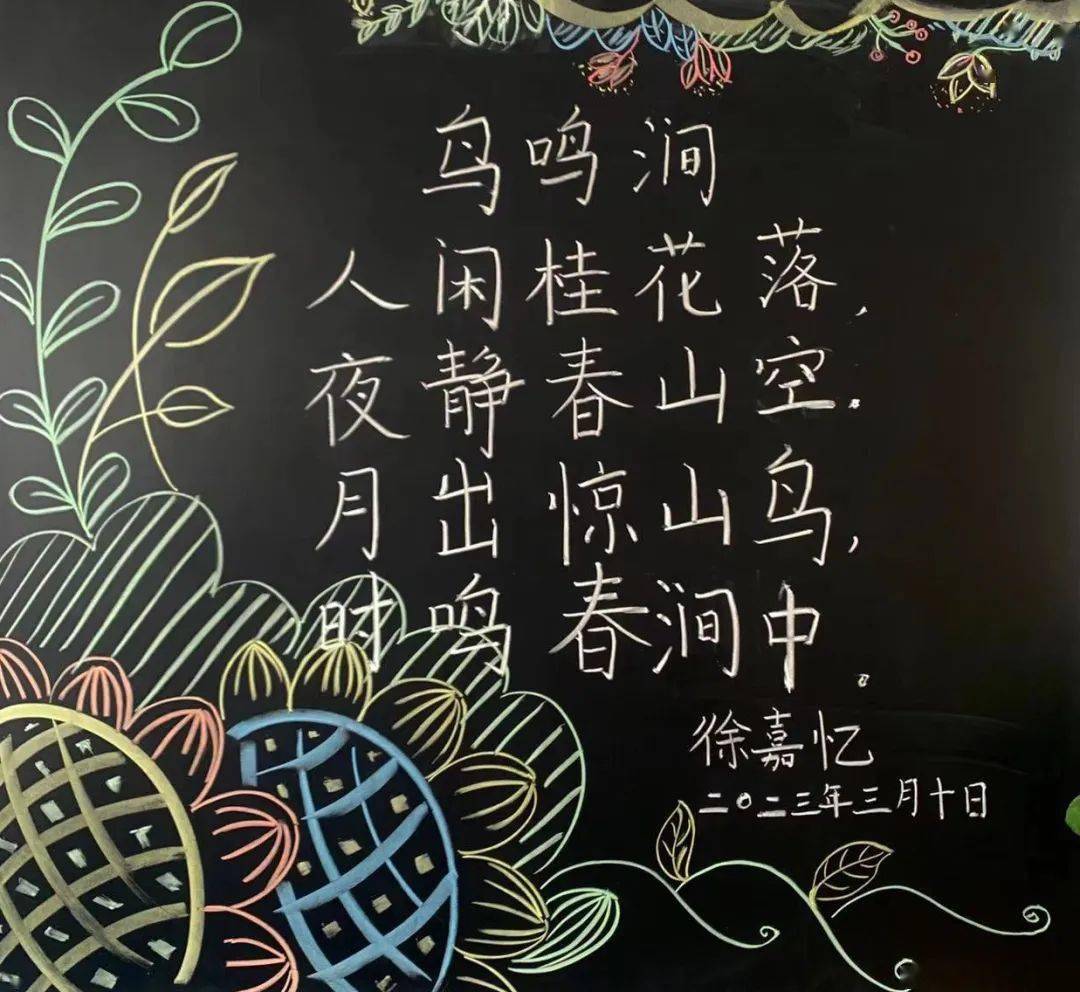 鸟鸣涧
人闲桂花落，
夜静春山空.
月出惊山鸟，
时鸣春涧中。
徐嘉忆
二〇二三年三月十日